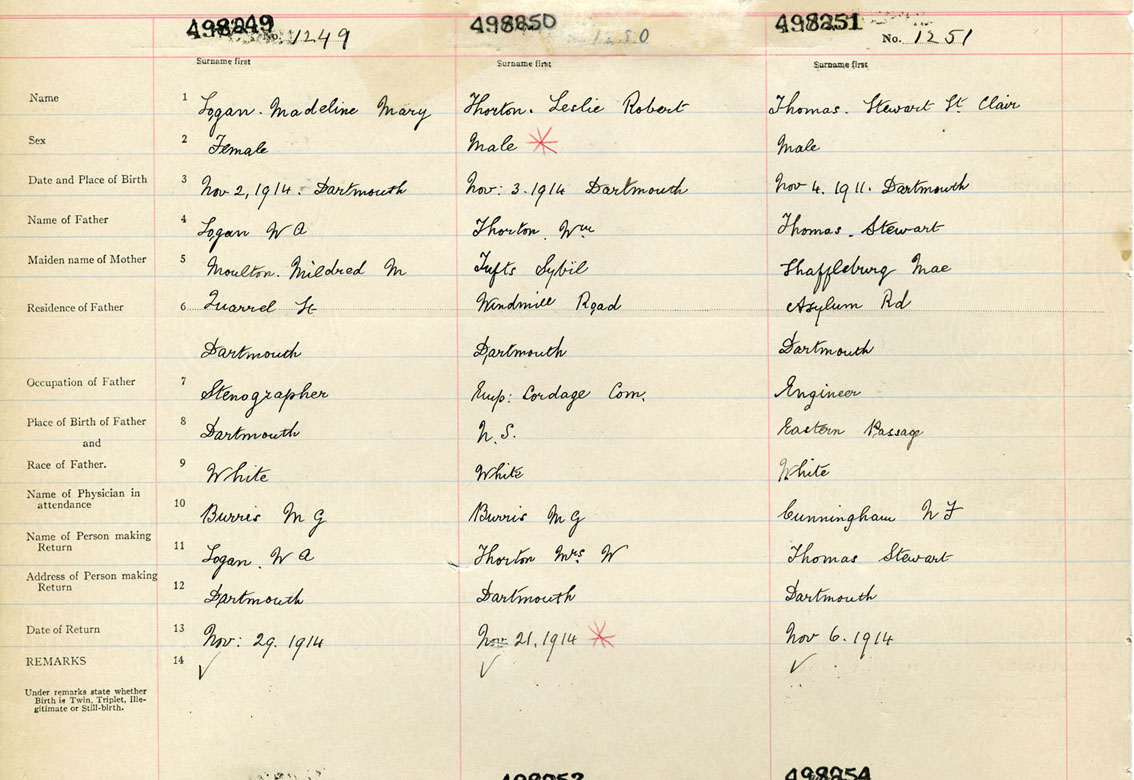 498249 498250 498251
No. 1249 1250 No. 1251
Surname first Surname first Surname first
Name 1 Logan. Madeline Mary Thorton. Leslie Robert Thomas. Stewart St. Clair
Sex 2 Female Male Male
Date and Place of Birth 3 Nov 2, 1914. Dartmouth Nov: 3. 1914 Dartmouth Nov 4. 1911. Dartmouth
Name of Father 4 Logan W A Thorton. Wm Thomas. Stewart
Maiden name of Mother 5 Moulton. Mildred M Tufts Sybil Shaffleburg Mae
Residence of Father 6 Quarrel St Windmill Road Asylum Rd
Dartmouth Dartmouth Dartmouth
Occupation of Father 7 Stenographer Emp: Cordage Com. Engineer
Place of Birth of Father 8 Dartmouth N.S. Eastern Passage
and
Race of Father. 9 White White White
Name of Physician in
attendance 10 Burris M G Burris M G Cunningham N F
Name of Person making
Return 11 Logan. W A Thorton Mrs. W Thomas Stewart
Address of Person making
Return 12 Dartmouth Dartmouth Dartmouth
Date of Return 13 Nov: 29. 1914 Nov 21, 1914 Nov 6. 1914
REMARKS 14
Under remarks state whether
Birth is Twin, Triplet, Ille-
gitimate or Still-birth.
498254